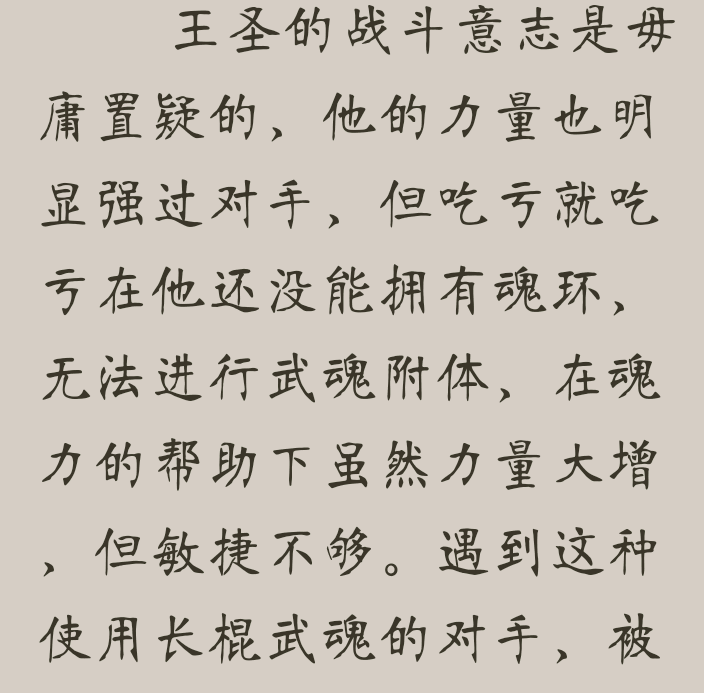 王圣的战斗意志是毋
庸置疑的、他的力量也明
显强过对手、但吃亏就吃
亏在他还没能拥有魂环、
无法进行武魂附体、在魂
力的帮助下虽然力量大增
、但敏捷不够。遇到这种
使用长棍武魂的对手、被